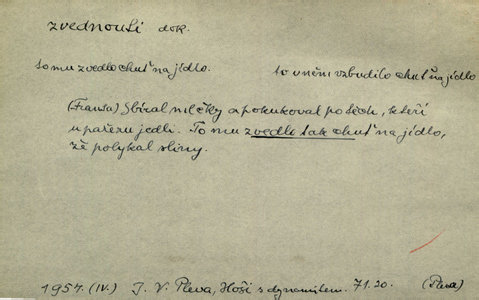 zvednouti dok.
to mu zvedlo chuť na jídlo. to v něm vzbudilo chuť na jídlo
(Franta) Sbíral mlčky a pokukoval po těch, kteří
u pařezu jedli. To mu zvedlo tak chuť na jídlo,
že polykal sliny.
1957. (IV.) J. V. Pleva, Hoši s dynamitem. 71.20. (Pleva)